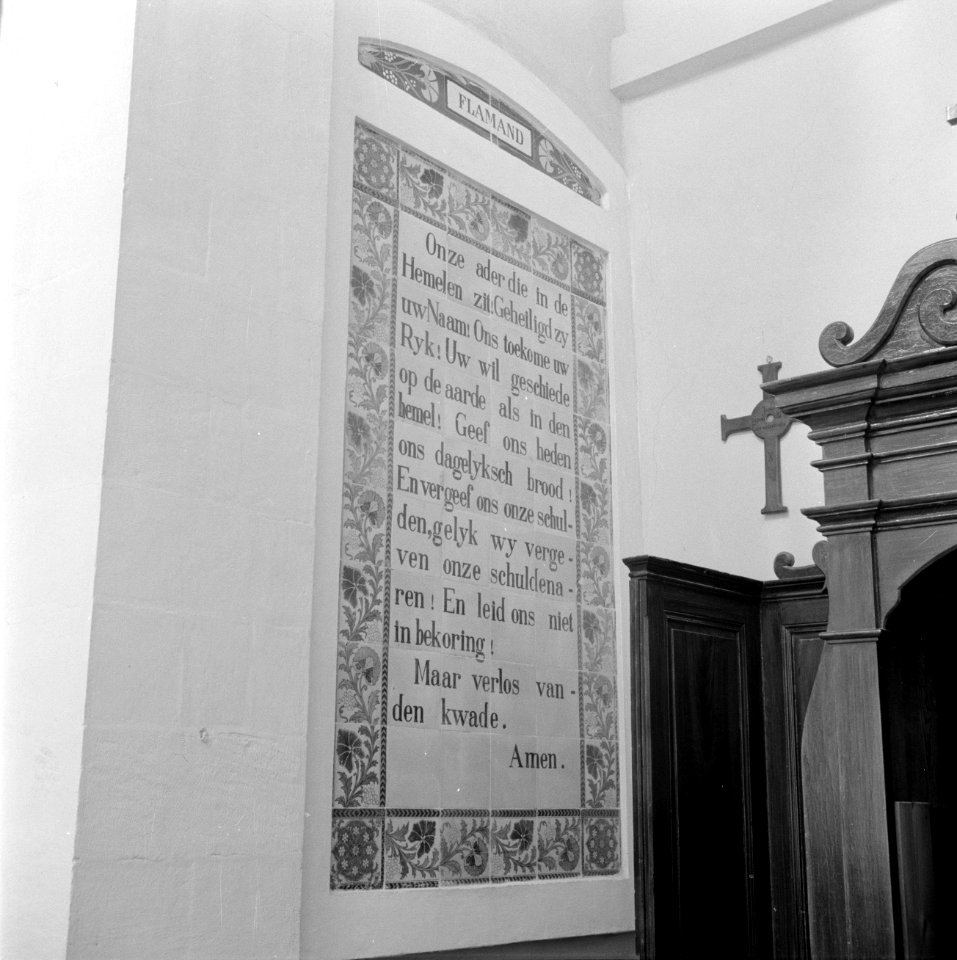 FLAMAND
Onze ader die in de
Hemelen zit! Geheiligd zy
uw Naam! Ons toekome uw
Ryk! Uw wil geschiede
op de aarde als in den
hemel! Geef ons heden
ons dagelyksch brood!
En vergeef ons onze schul-
den, gelyk wy verge-
ven onze schuldena-
ren! En leid ons niet
in bekoring!
Maar verlos van-
den kwade.
Amen.